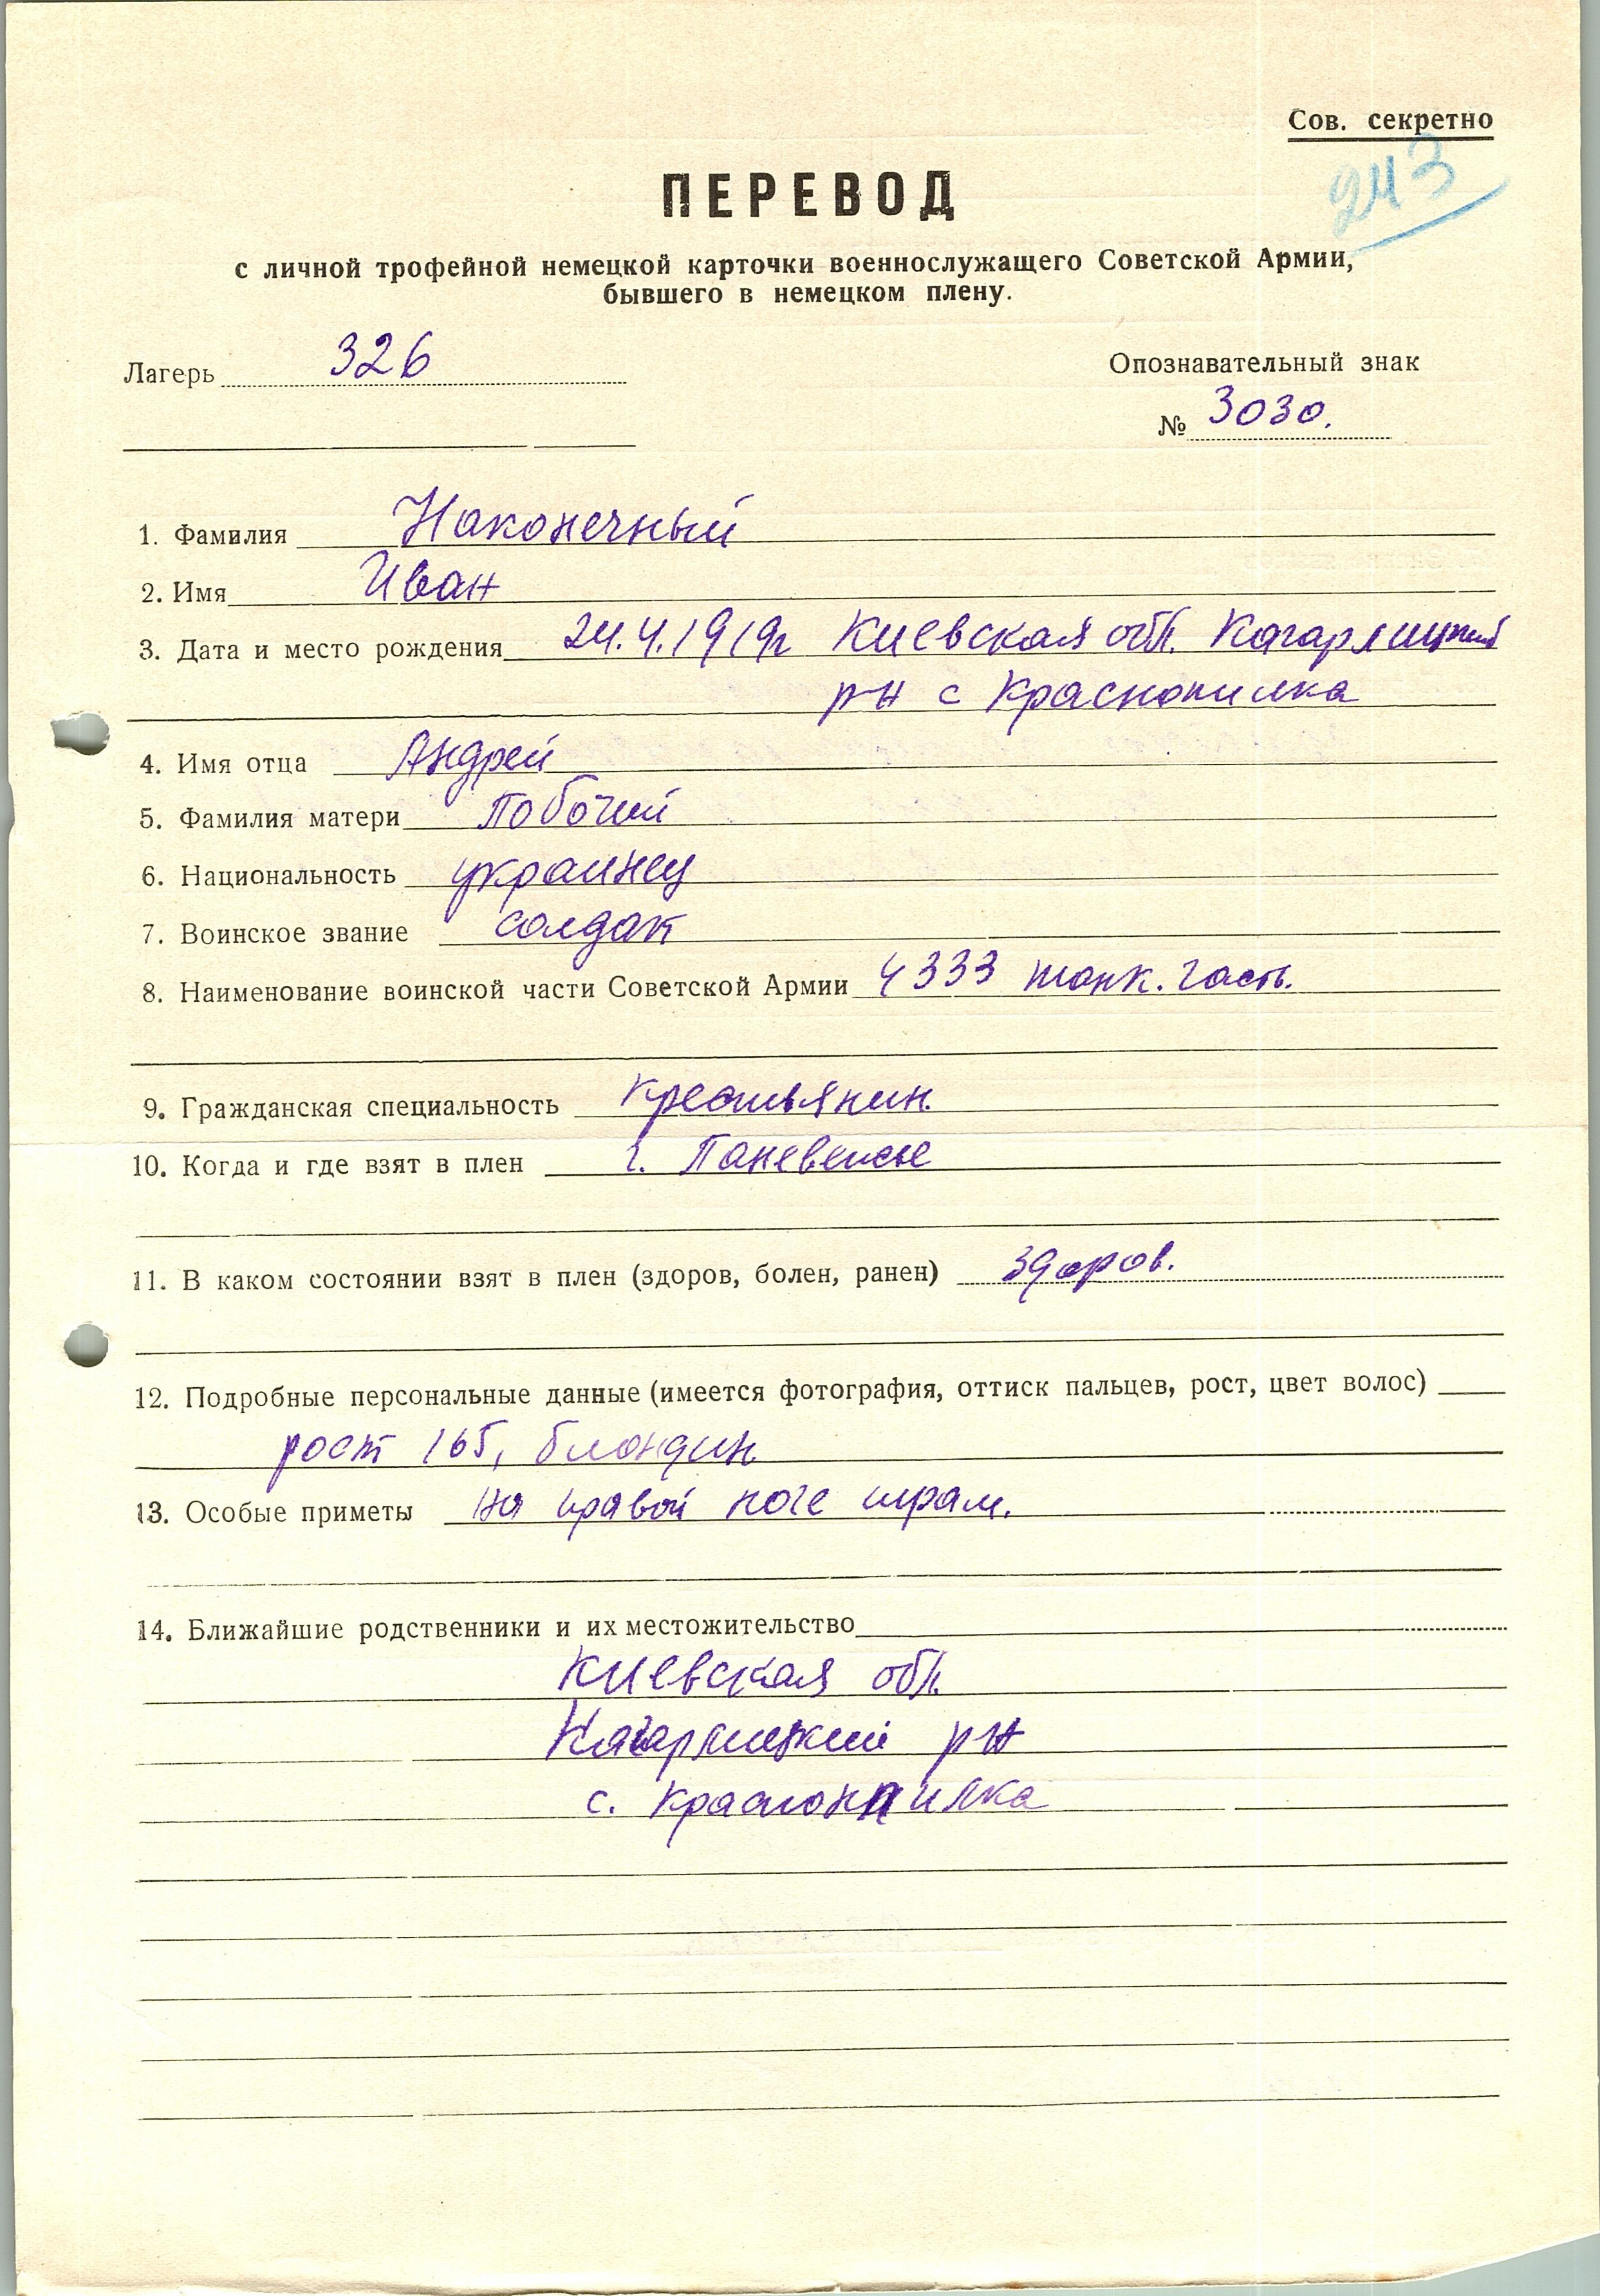 Сов. секретно
243
ПЕРЕВОД
с личной трофейной немецкой карточки военнослужащего Советской Армии,
бывшего в немецком плену.
Лагерь 326
Опознавательный знак
№ 3030.
1. Фамилия Наконечный
2. Имя Иван
3. Дата и место рождения 24.4.1919г Киевская обл. Кагарлицкий
р-н с Краснопилка
4. Имя отца Андрей
5. Фамилия матери Побочий
6. Национальность украинец
7. Воинское звание солдат
8. Наименование воинской части Советской Армии 4333 танк. часть.
9. Гражданская специальность крестьянин.
10. Когда и где взят в плен г. Паневежсе
11. В каком состоянии взят в плен (здоров, болен, ранен) здоров.
12. Подробные персональные данные (имеется фотография, оттиск пальцев, рост, цвет волос)
рост 165, блондин
13. Особые приметы на правой ноге шрам.
14. Ближайшие родственники и их местожительство
Киевская обл.
Кагарлицкий р-н
с. Краснопилка